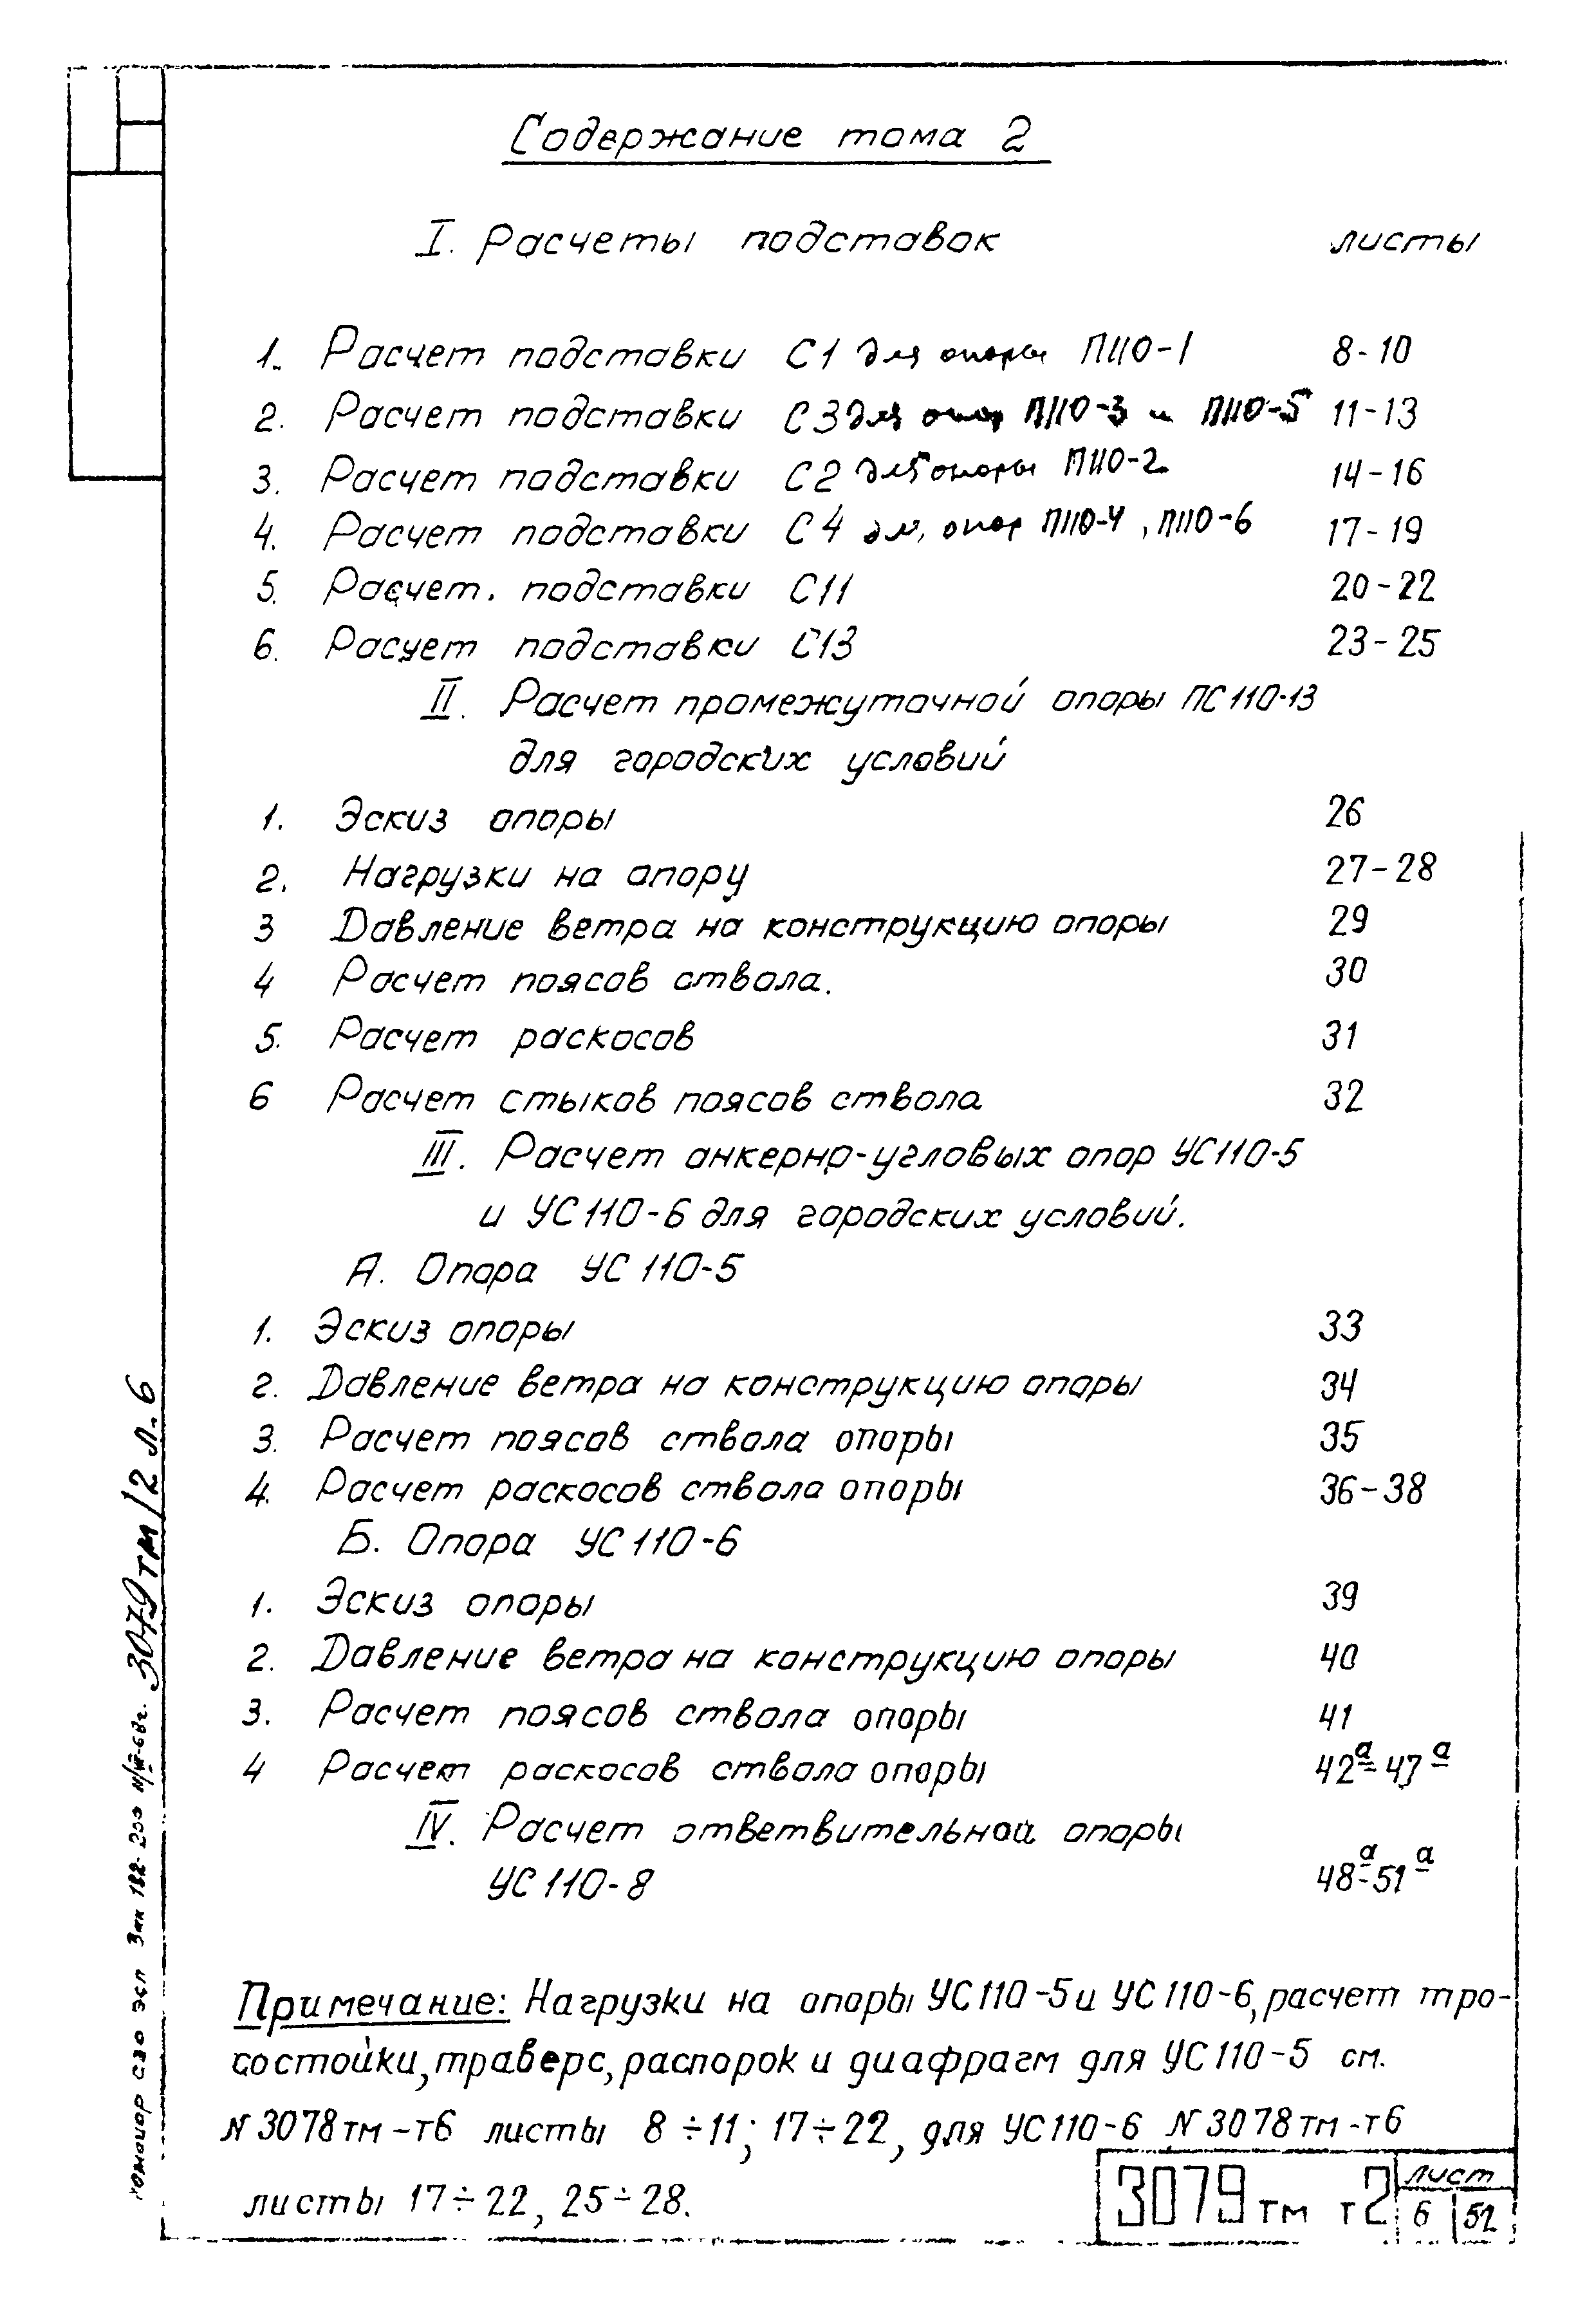 Содержание тома 2
I. Расчеты подставок листы
1. Расчет подставки С1 для опоры П110-1 8-10
2. Расчет подставки С3 для опор П110-3 и П110-5 11-13
3. Расчет подставки С2 для опоры П110-2 14-16
4. Расчет подставки С4 для опор П110-4, П110-6 17-19
5. Расчет. подставки С11 20-22
6. Расчет подставки С13 23-25
II. Расчет промежуточной опоры ПС110-13
для городских условий
1. Эскиз опоры 26
2. Нагрузки на опору 27-28
3 Давление ветра на конструкцию опоры 29
4 Расчет поясов ствола. 30
5. Расчет раскосов 31
6 Расчет стыков поясов ствола 32
III. Расчет анкерно-угловых опор УС110-5
и УС110-6 для городских условий.
А. Опора УС110-5
1. Эскиз опоры 33
2. Давление ветра на конструкцию опоры 34
3. Расчет поясов ствола опоры 35
4. Расчет раскосов ствола опоры 36-38
Б. Опора УС110-6
1. Эскиз опоры 39
2. Давление ветра на конструкцию опоры 40
3. Расчет поясов ствола опоры 41
4 Расчет раскосов ствола опоры 42а-47а
IV. Расчет ответвительной опоры
УС110-8 48а-51а
Примечание: Нагрузки на опоры УС110-5 и УС110-6, расчет тро-
состойки, траверс, распорок и диафрагм для УС110-5 см.
N3078тм-т6 листы 8÷11; 17÷22, для УС110-6 N3078тм-т6
листы 17÷22, 25÷28.
3079тм т2 лист
6 52
3079тм/2 л.6
СЗО ЭСП Зак 182-200